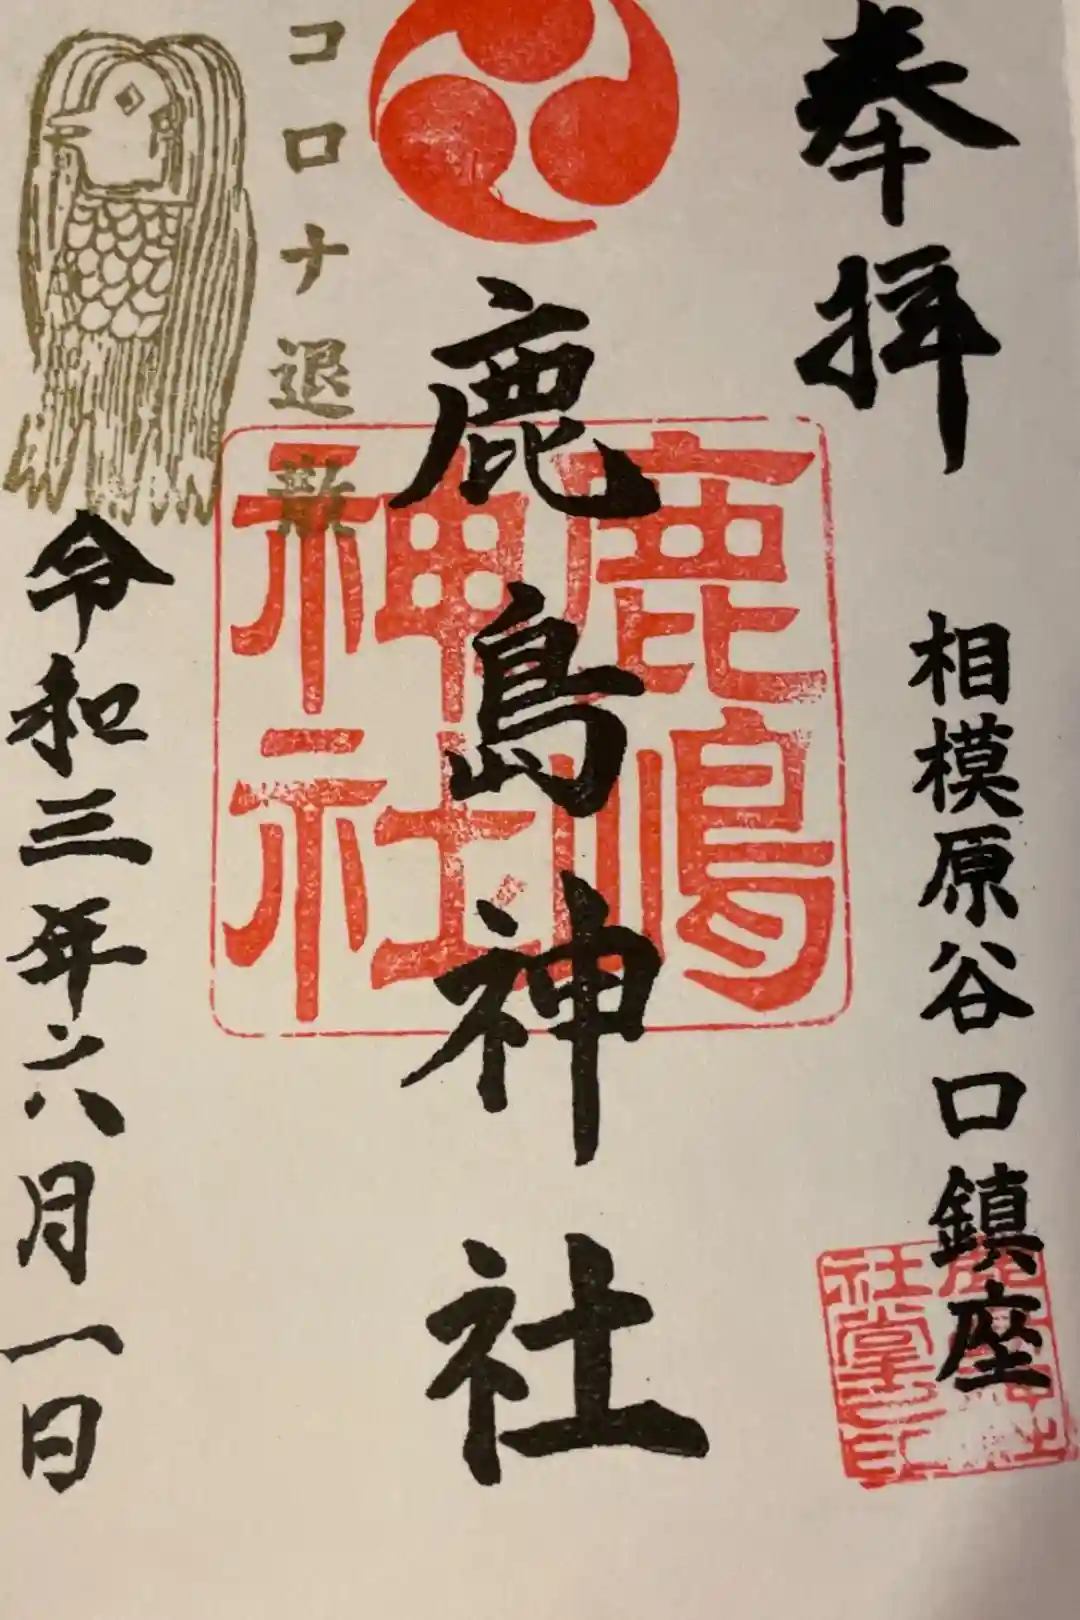 奉拝
相模原谷口鎮座
鹿島神社
鹿嶋
神社
コロナ退散
令和三年六月一日